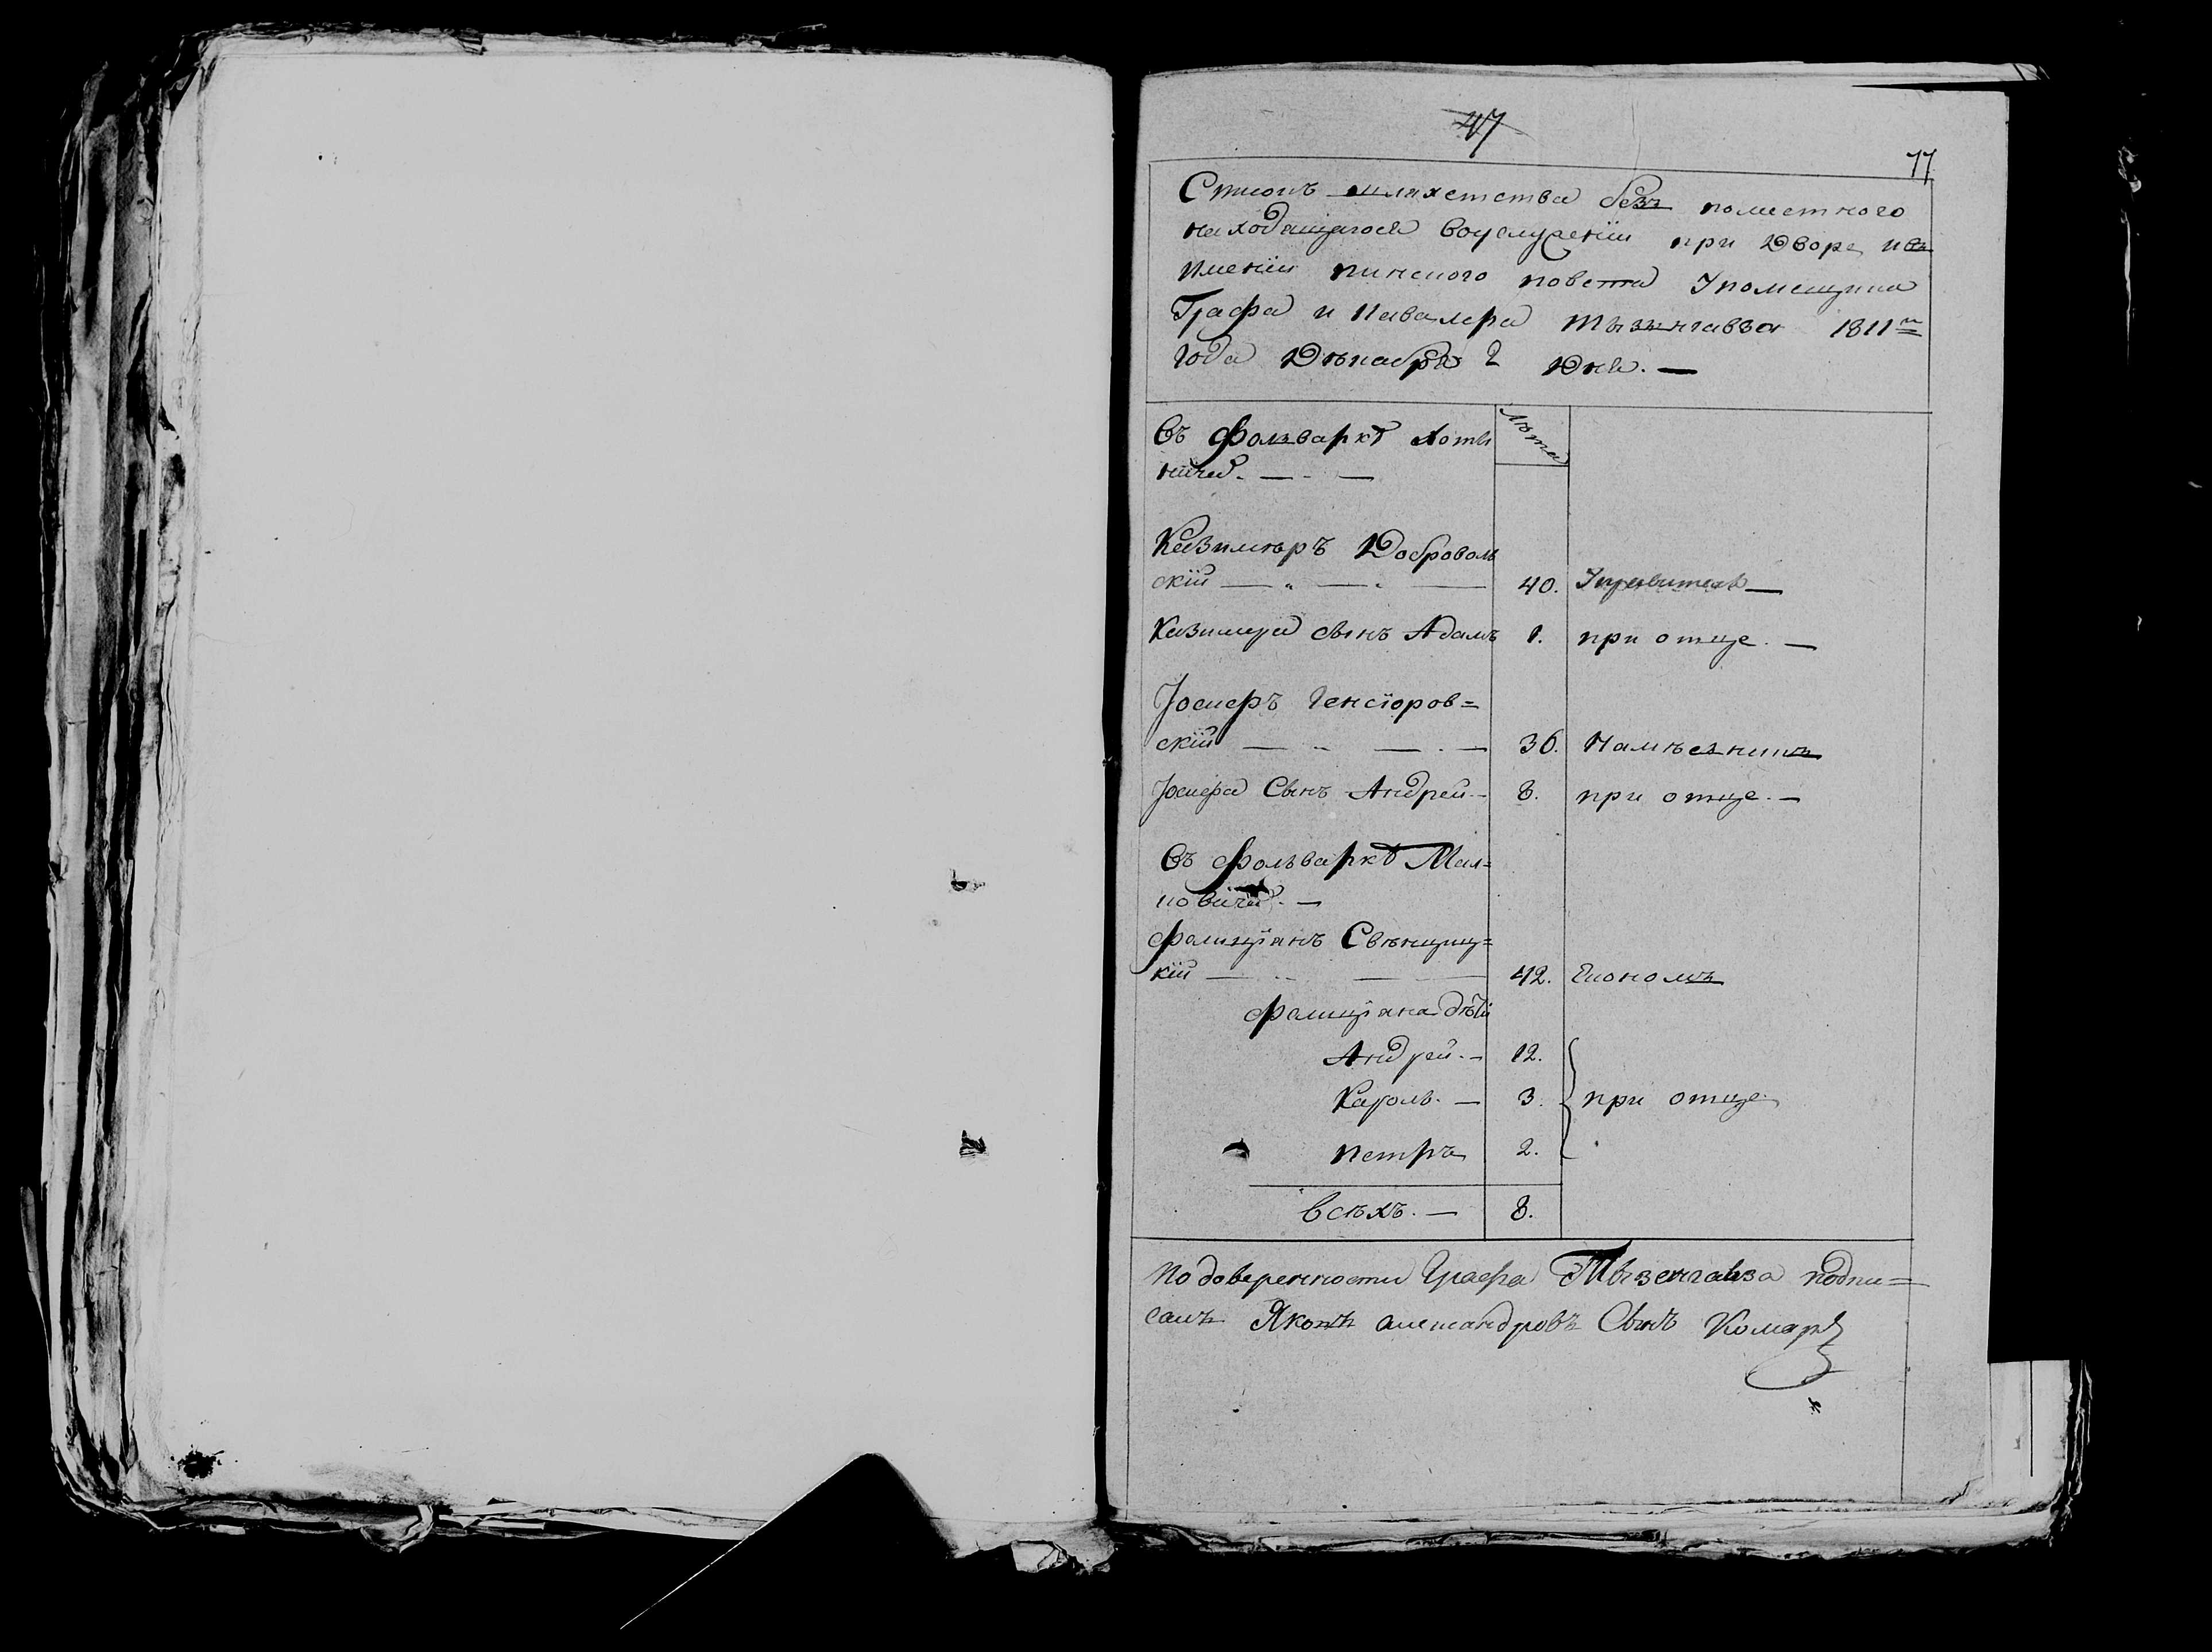 47
77
Списокъ шляхетства безъ поместного
находящагося воуслуженіи при Дворе ивъ
имении пинского повета Упомещика
Графа и Кавалера тызенгавза 1811го
года Дѣкабря 2 Дня. —
Въ фольваркѣ Хоты
ничеи. — - —
Лѣта
Казимѣръ Доброволь
скій — „ — . — 40. Управитель —
Казимера сынъ Адамъ 1. при отце. —
Іосиеръ Генсіоров=
скій — „ — . — 36. Намѣсзникъ
Іосиера Сынъ Андреи. - 8. при отце. —
Въ фольваркѣ Мал=
ковичи. —
Фалиціянъ Свѣнциц=
кій — .. — 42. Економъ
Фалиціяна дѣти
Андреи. - 12.
Кароль. — 3. при отце.
петръ 2.
всѣхъ. — 8.
по доверенности Граера Тызенгавза подпи=
салъ Якопъ александровъ Сынъ Комаръ